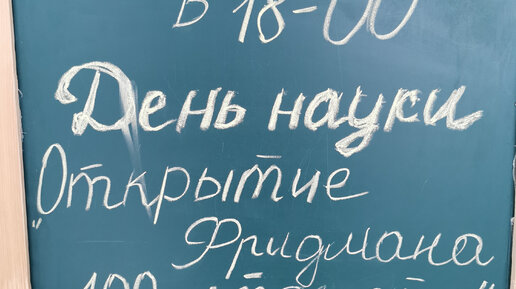 в 18-00
День науки
"Открытие
Фридмана
100